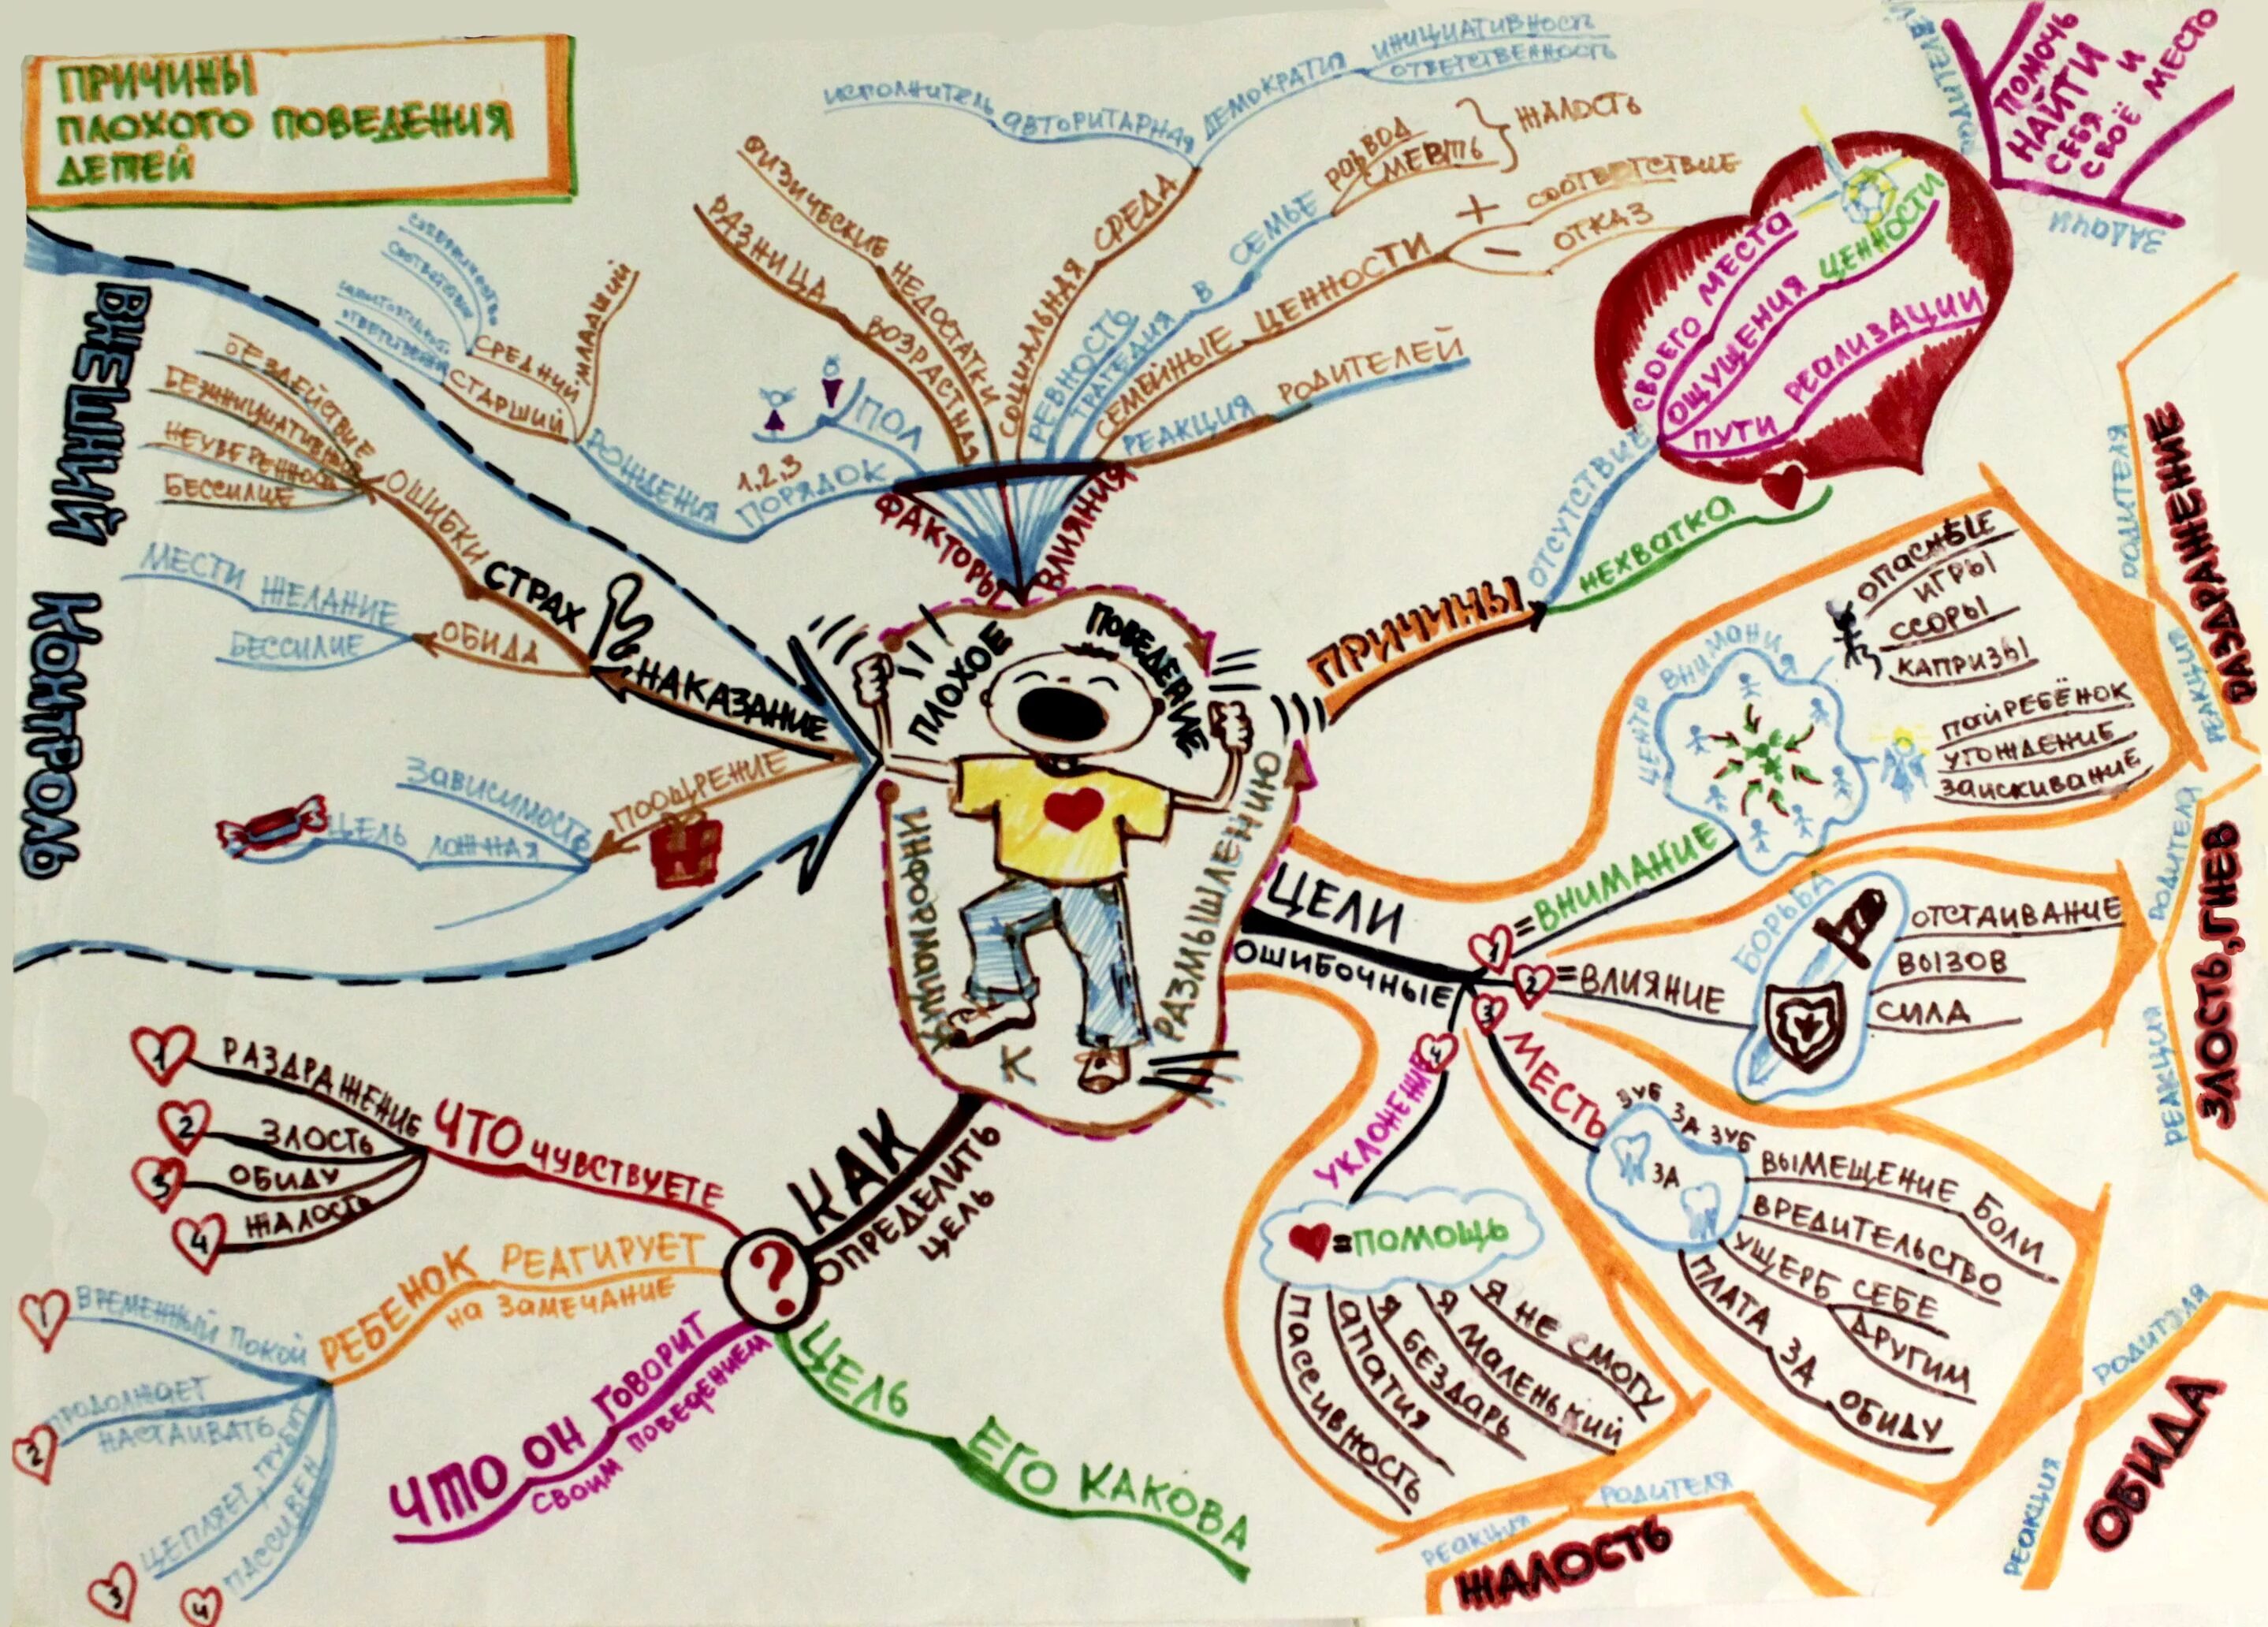 ПРИЧИНЫ
ПЛОХОГО ПОВЕДЕНИЯ
ДЕТЕЙ
ПЛОХОЕ ПОВЕДЕНИЕ
ИНФОРМАЦИЯ
К
РАЗМЫШЛЕНИЮ
ФАКТОРЫ ВЛИЯНИЯ
ПОЛ
1,2,3
ПОРЯДОК
РОЖДЕНИЯ
МЛАДШИЙ
СРЕДНИЙ
СТАРШИЙ
РАЗНИЦА ВОЗРАСТНАЯ
ФИЗИЧЕСКИЕ НЕДОСТАТКИ
СОЦИАЛЬНАЯ СРЕДА
АВТОРИТАРНАЯ
ИСПОЛНИТЕЛЬ
ДЕМОКРАТИЯ
ИНИЦИАТИВНОСТЬ
ОТВЕТСТВЕННОСТЬ
РЕВНОСТЬ
ТРАГЕДИЯ В СЕМЬЕ
РАЗВОД
СМЕРТЬ
} ЖАЛОСТЬ
СЕМЕЙНЫЕ ЦЕННОСТИ
+ СООТВЕТСТВИЕ
- ОТКАЗ
РЕАКЦИЯ РОДИТЕЛЕЙ
ПРИЧИНЫ
ОТСУТСТВИЕ
СВОЕГО МЕСТА
ОЩУЩЕНИЯ ЦЕННОСТИ
ПУТИ РЕАЛИЗАЦИИ
НЕХВАТКА
ЗАДАЧИ
ПОМОЧЬ
НАЙТИ
СЕБЯ И
СВОЁ МЕСТО
ЦЕЛИ
ОШИБОЧНЫЕ
1 = ВНИМАНИЕ
ЦЕНТР ВНИМАНИЯ
ОПАСНЫЕ
ИГРЫ
ССОРЫ
КАПРИЗЫ
ПАЙ РЕБЁНОК
УГОЖДЕНИЕ
ЗАИСКИВАНИЕ
РОДИТЕЛЯ
РЕАКЦИЯ
РАЗДРАЖЕНИЕ
2 = ВЛИЯНИЕ
БОРЬБА
ОТСТАИВАНИЕ
ВЫЗОВ
СИЛА
РОДИТЕЛЯ
РЕАКЦИЯ
ЗЛОСТЬ, ГНЕВ
3 МЕСТЬ
ЗУБ ЗА ЗУБ
ЗА
ВЫМЕЩЕНИЕ БОЛИ
ВРЕДИТЕЛЬСТВО
УЩЕРБ СЕБЕ
ДРУГИМ
ПЛАТА ЗА ОБИДУ
РОДИТЕЛЯ
РЕАКЦИЯ
ОБИДА
4 УКЛОНЕНИЕ
=ПОМОЩЬ
Я НЕ СМОГУ
Я МАЛЕНЬКИЙ
Я БЕЗДАРЬ
АПАТИЯ
ПАССИВНОСТЬ
РЕАКЦИЯ РОДИТЕЛЯ
ЖАЛОСТЬ
КАК
ОПРЕДЕЛИТЬ
ЦЕЛЬ
?
ЧТО ЧУВСТВУЕТЕ
1 РАЗДРАЖЕНИЕ
2 ЗЛОСТЬ
3 ОБИДУ
4 ЖАЛОСТЬ
РЕБЕНОК РЕАГИРУЕТ
НА ЗАМЕЧАНИЕ
1 ВРЕМЕННЫЙ ПОКОЙ
2 ПРОДОЛЖАЕТ
НАСТАИВАТЬ
3 ЦЕПЛЯЕТ, ГРУБИТ
4 ПАССИВЕН
ЧТО ОН ГОВОРИТ
СВОИМ ПОВЕДЕНИЕМ
ЦЕЛЬ ЕГО КАКОВА
ВНЕШНИЙ КОНТРОЛЬ
НАКАЗАНИЕ
СТРАХ
ОШИБКИ
БЕЗДЕЙСТВИЕ
НЕУВЕРЕННОСТЬ
БЕССИЛИЕ
ОБИДА
МЕСТИ ЖЕЛАНИЕ
БЕССИЛИЕ
ПООЩРЕНИЕ
ЗАВИСИМОСТЬ
ЦЕЛЬ ЛОЖНАЯ